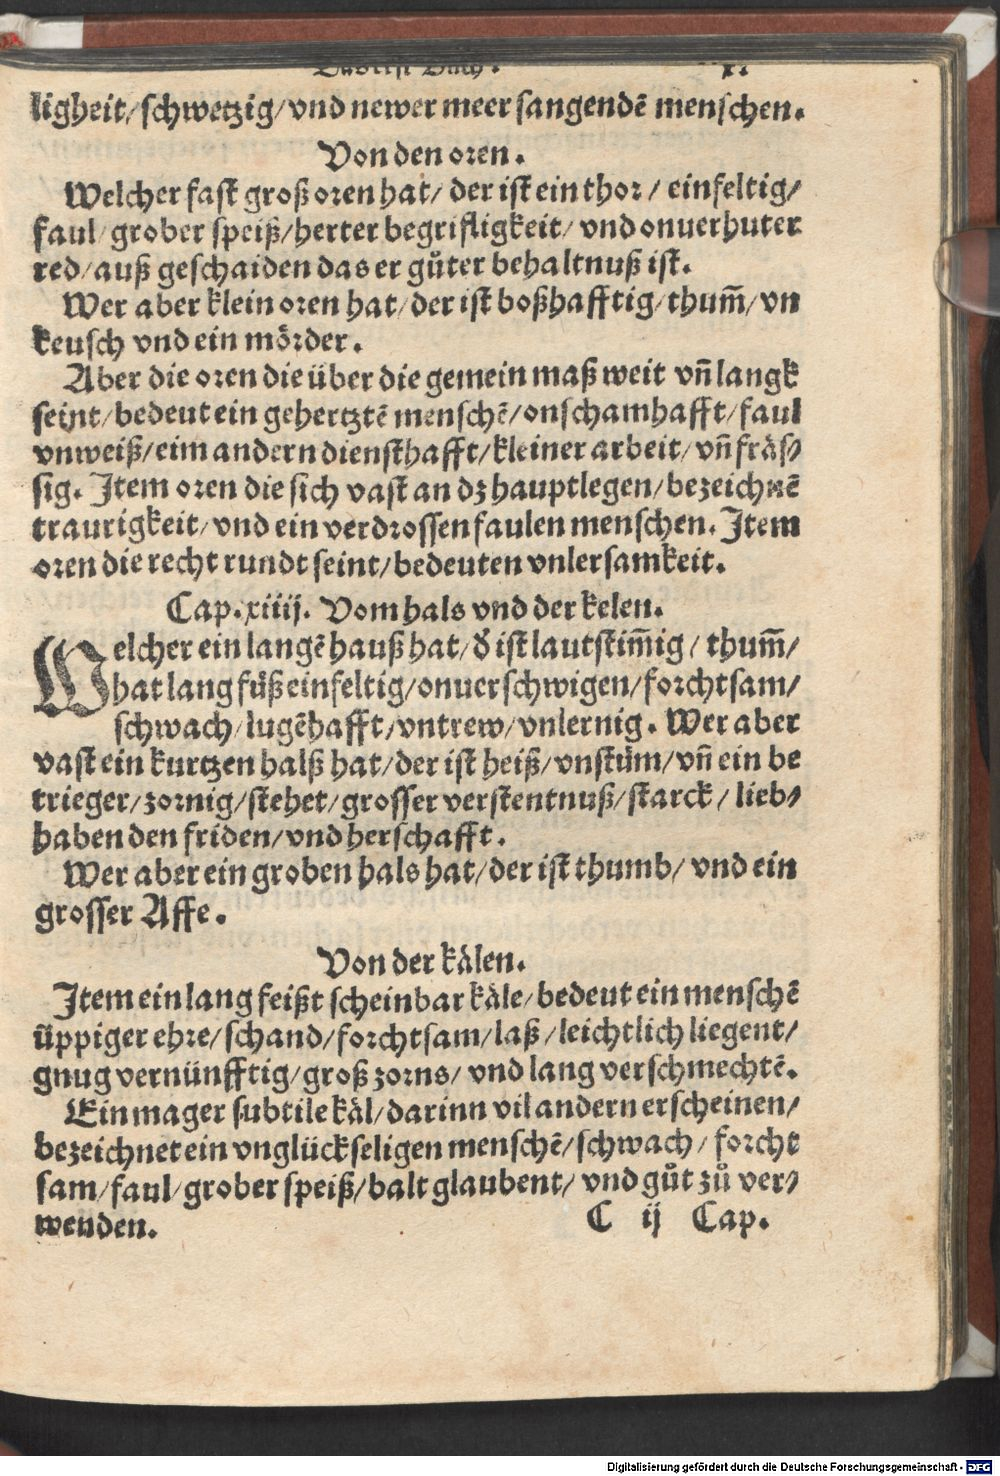 ligheit/schwetzig/vnd newer meer sangendē menschen.
Von den oren.
Welcher fast groß oren hat/ der ist ein thor/ einfeltig/
faul/grober speiß/herter begrifligkeit/vnd onuerhuter
red/auß geschaiden das er gůter behaltnuß ist.
Wer aber klein oren hat/der ist boßhafftig/thum̄/vn
keusch vnd ein mörder.
Aber die oren die über die gemein maß weit vn̄ langk
seint/bedeut ein gehertztē menschē/onschamhafft/faul
vnweiß/eim andern diensthafft/kleiner arbeit/vn̄ fräs⸗
sig. Item oren die sich vast an dz haupt legen/bezeichnē
traurigkeit/vnd ein verdrossen faulen menschen. Item
oren die recht rundt seint/bedeuten vnlersamkeit.
Cap. xiiij. Vom hals vnd der kelen.
Welcher ein langē hauß hat/ď ist lautstim̄ig/ thum̄/
hat lang füß einfeltig/onuerschwigen/forchtsam/
schwach/lugēhafft/vntrew/vnlernig. Wer aber
vast ein kurtzen halß hat/der ist heiß/vnstüm/vn̄ ein be
trieger/zornig/stehet/grosser verstentnuß/starck/lieb⸗
haben den friden/vnd herschafft.
Wer aber ein groben hals hat/der ist thumb/ vnd ein
grosser Affe.
Von der kälen.
Item ein lang feißt scheinbar käle/bedeut ein menschē
üppiger ehre/schand/forchtsam/laß/leichtlich liegent/
gnug vernünfftig/groß zorns/ vnd lang verschmechtē.
Ein mager subtile käl/darinn vil andern erscheinen/
bezeichnet ein vnglückseligen menschē/schwach/forcht
sam/faul/grober speiß/balt glaubent/ vnd gůt zů ver⸗
wenden.
C ij Cap.
Digitalisierung gefördert durch die Deutsche Forschungsgemeinschaft - DFG